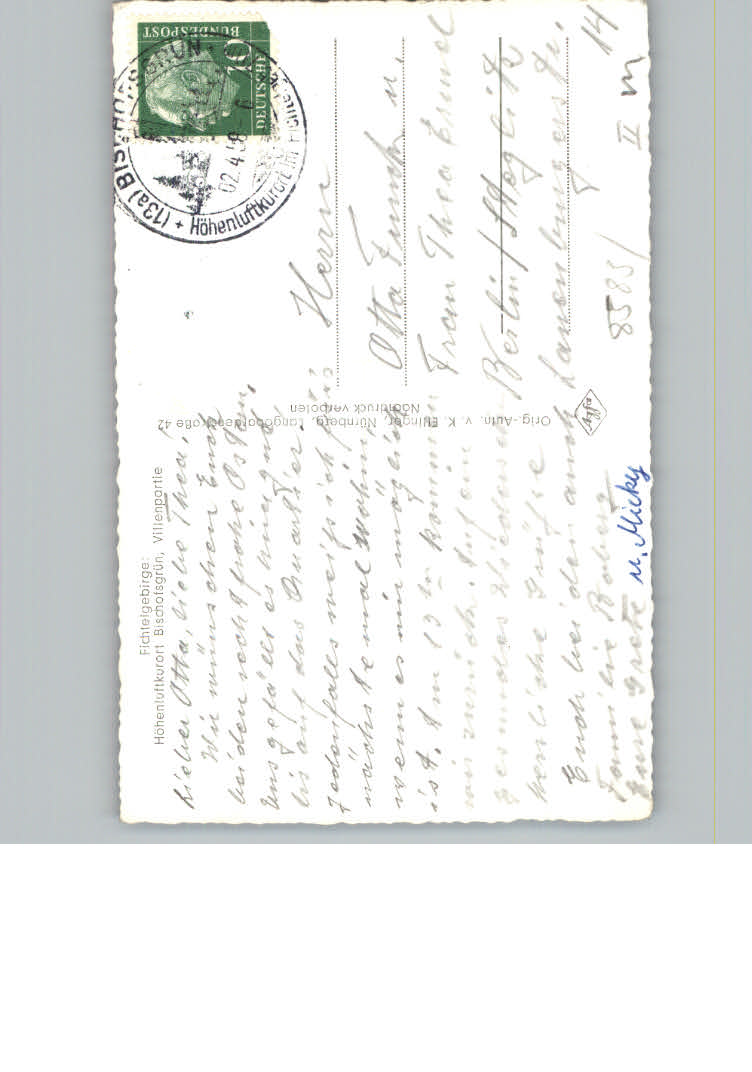 Fichtelgebirge:
Höhenluftkurort Bischofsgrün, Villenpartie
Lieber Otto, liebe Thea!
Wir wünschen Euch
beiden recht frohe Ostern.
Uns gefällt es hier gut
bis auf das Quartier.
Jedenfalls weiß ich für's
nächste mal wohin,
wenn es mir möglich
ist. Am 13 ten kommen
wir zurück. Auf ein
gesundes Wiedersehn
herzliche Grüße
Euch beiden auch
Familie
Eure Grete u. Micky
Orig.-Aufn. v. K. Ellinger, Nürnberg, Langobardenstraße 42
Nachdruck verboten
Agfa
DEUTSCHE
BUNDESPOST
10
(13a) BISCHOFSGRÜN
02.4.58
+ Höhenluftkurort im Fichtelgebirge
Herrn
Otto u.
Frau Thea
Berlin/Steglitz
Lauenburgerstr. 14
II
8583/